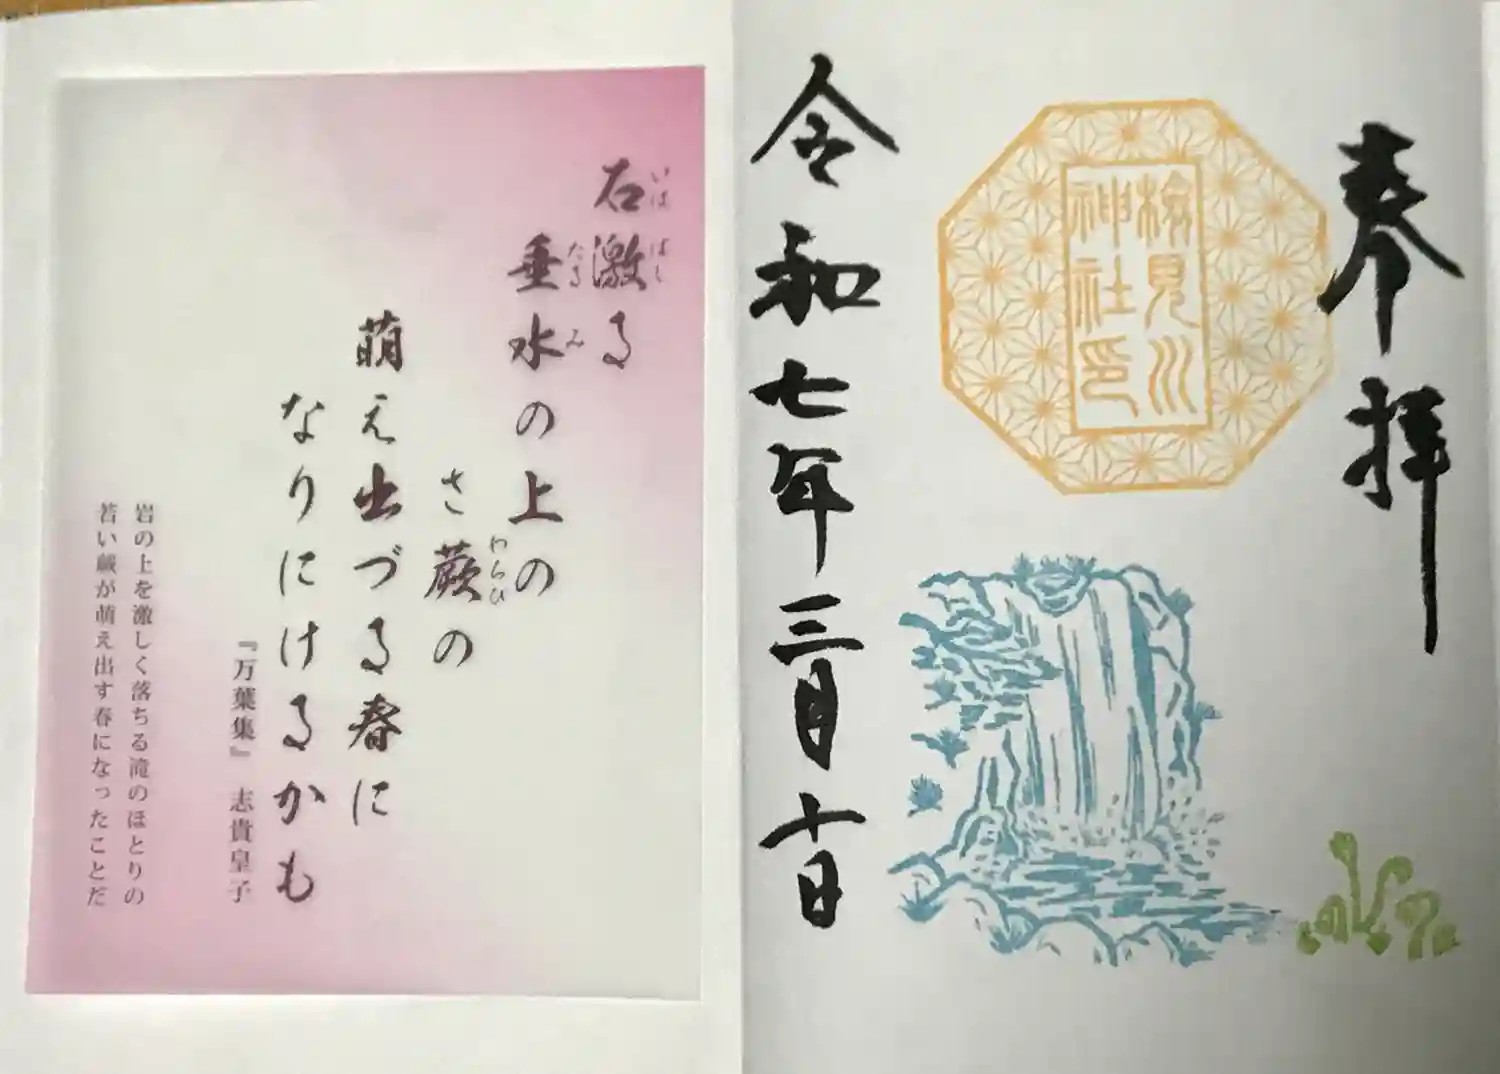 奉拝
検見川
神社印
令和七年三月十日
石激る
いは ばし
垂水の上の
たる み
さ蕨の
わらひ
萌え出づる春に
なりにけるかも
『万葉集』 志貴皇子
岩の上を激しく落ちる滝のほとりの
若い蕨が萌え出す春になったことだ